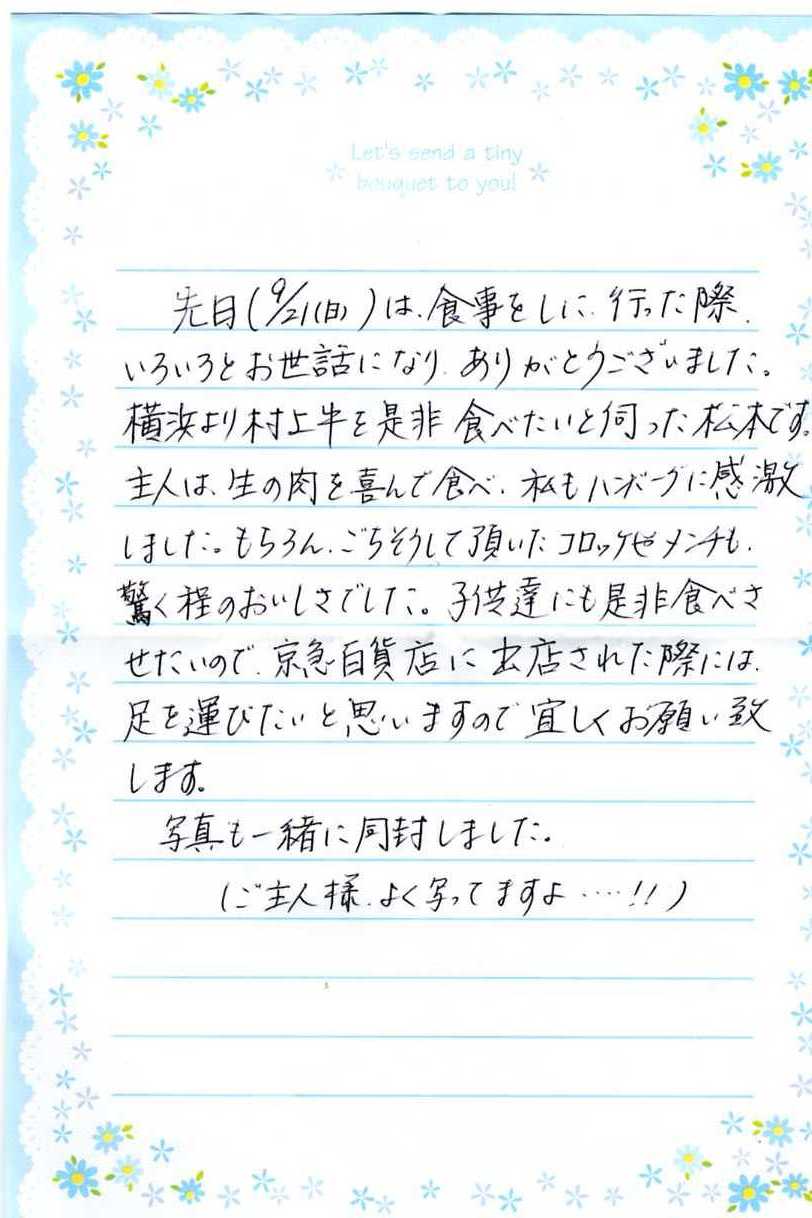 Let's send a tiny
bouquet to you!
先日(9/21(日))は、食事をしに、行った際、
いろいろとお世話になり、ありがとうございました。
横浜より村上牛を是非食べたいと伺った松本です。
主人は、生の肉を喜んで食べ、私もハンバーグに感激
しました。もちろん、ごちそうして頂いたコロッケやメンチも、
驚く程のおいしさでした。子供達にも是非食べさ
せたいので、京急百貨店に出店された際には、
足を運びたいと思いますので宜しくお願い致
します。
写真も一緒に同封しました。
(ご主人様、よく写ってますよ……!!)